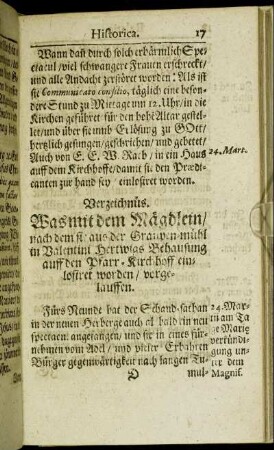 Historica. 17
Wann dañ durch solch erbärmlich Spe-
ctacul / viel schwangere Frauen erschreckt /
und alle Andacht zerstöret worden: Als ist
sie Communicato consilio, täglich eine beson-
dere Stund zu Mittage um 12. Uhr / in die
Kirchen geführet / für den hohe Altar gestel-
let / und über sie umb Erlösung zu GOtt
hertzlich gesungen / geschrien / und gebetet /
Auch von E. E. W. Rath / in ein Haus
24. Mart.
auff dem Kirchhoffe / damit sie den Prædi-
canten zur hand sey / einlosiret worden.
Verzeichnüs.
Was mit dem Mägdlein /
nach dem sie aus der Graupen-mühl
in Valentini Hertwigs Behausung
auff den Pfarr-Kirchhoff ein-
losiret worden / vorge-
lauffen.
Fürs Neunde hat der Schand-sathan
in der neuen Herberge auch al bald ein neu
spectacul angefangen / und sie in eines für-
nehmen vom Adel / und vieler Erbahren
Bürger gegenwärtigkeit nach langen Tu-
24. Mar-
tii am Ta-
ge Mariæ
verkündi-
gung un-
ter dem
Magnif.
D mul-